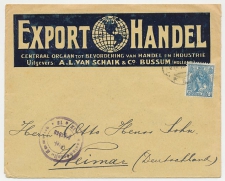 EXPORT HANDEL
CENTRAAL ORGAAN TOT BEVORDERING VAN HANDEL EN INDUSTRIE
Uitgevers A.L. VAN SCHAIK & Co BUSSUM (HOLLAND)
Herrn Otto Henos Sohn.
Weimar (Deutschland)